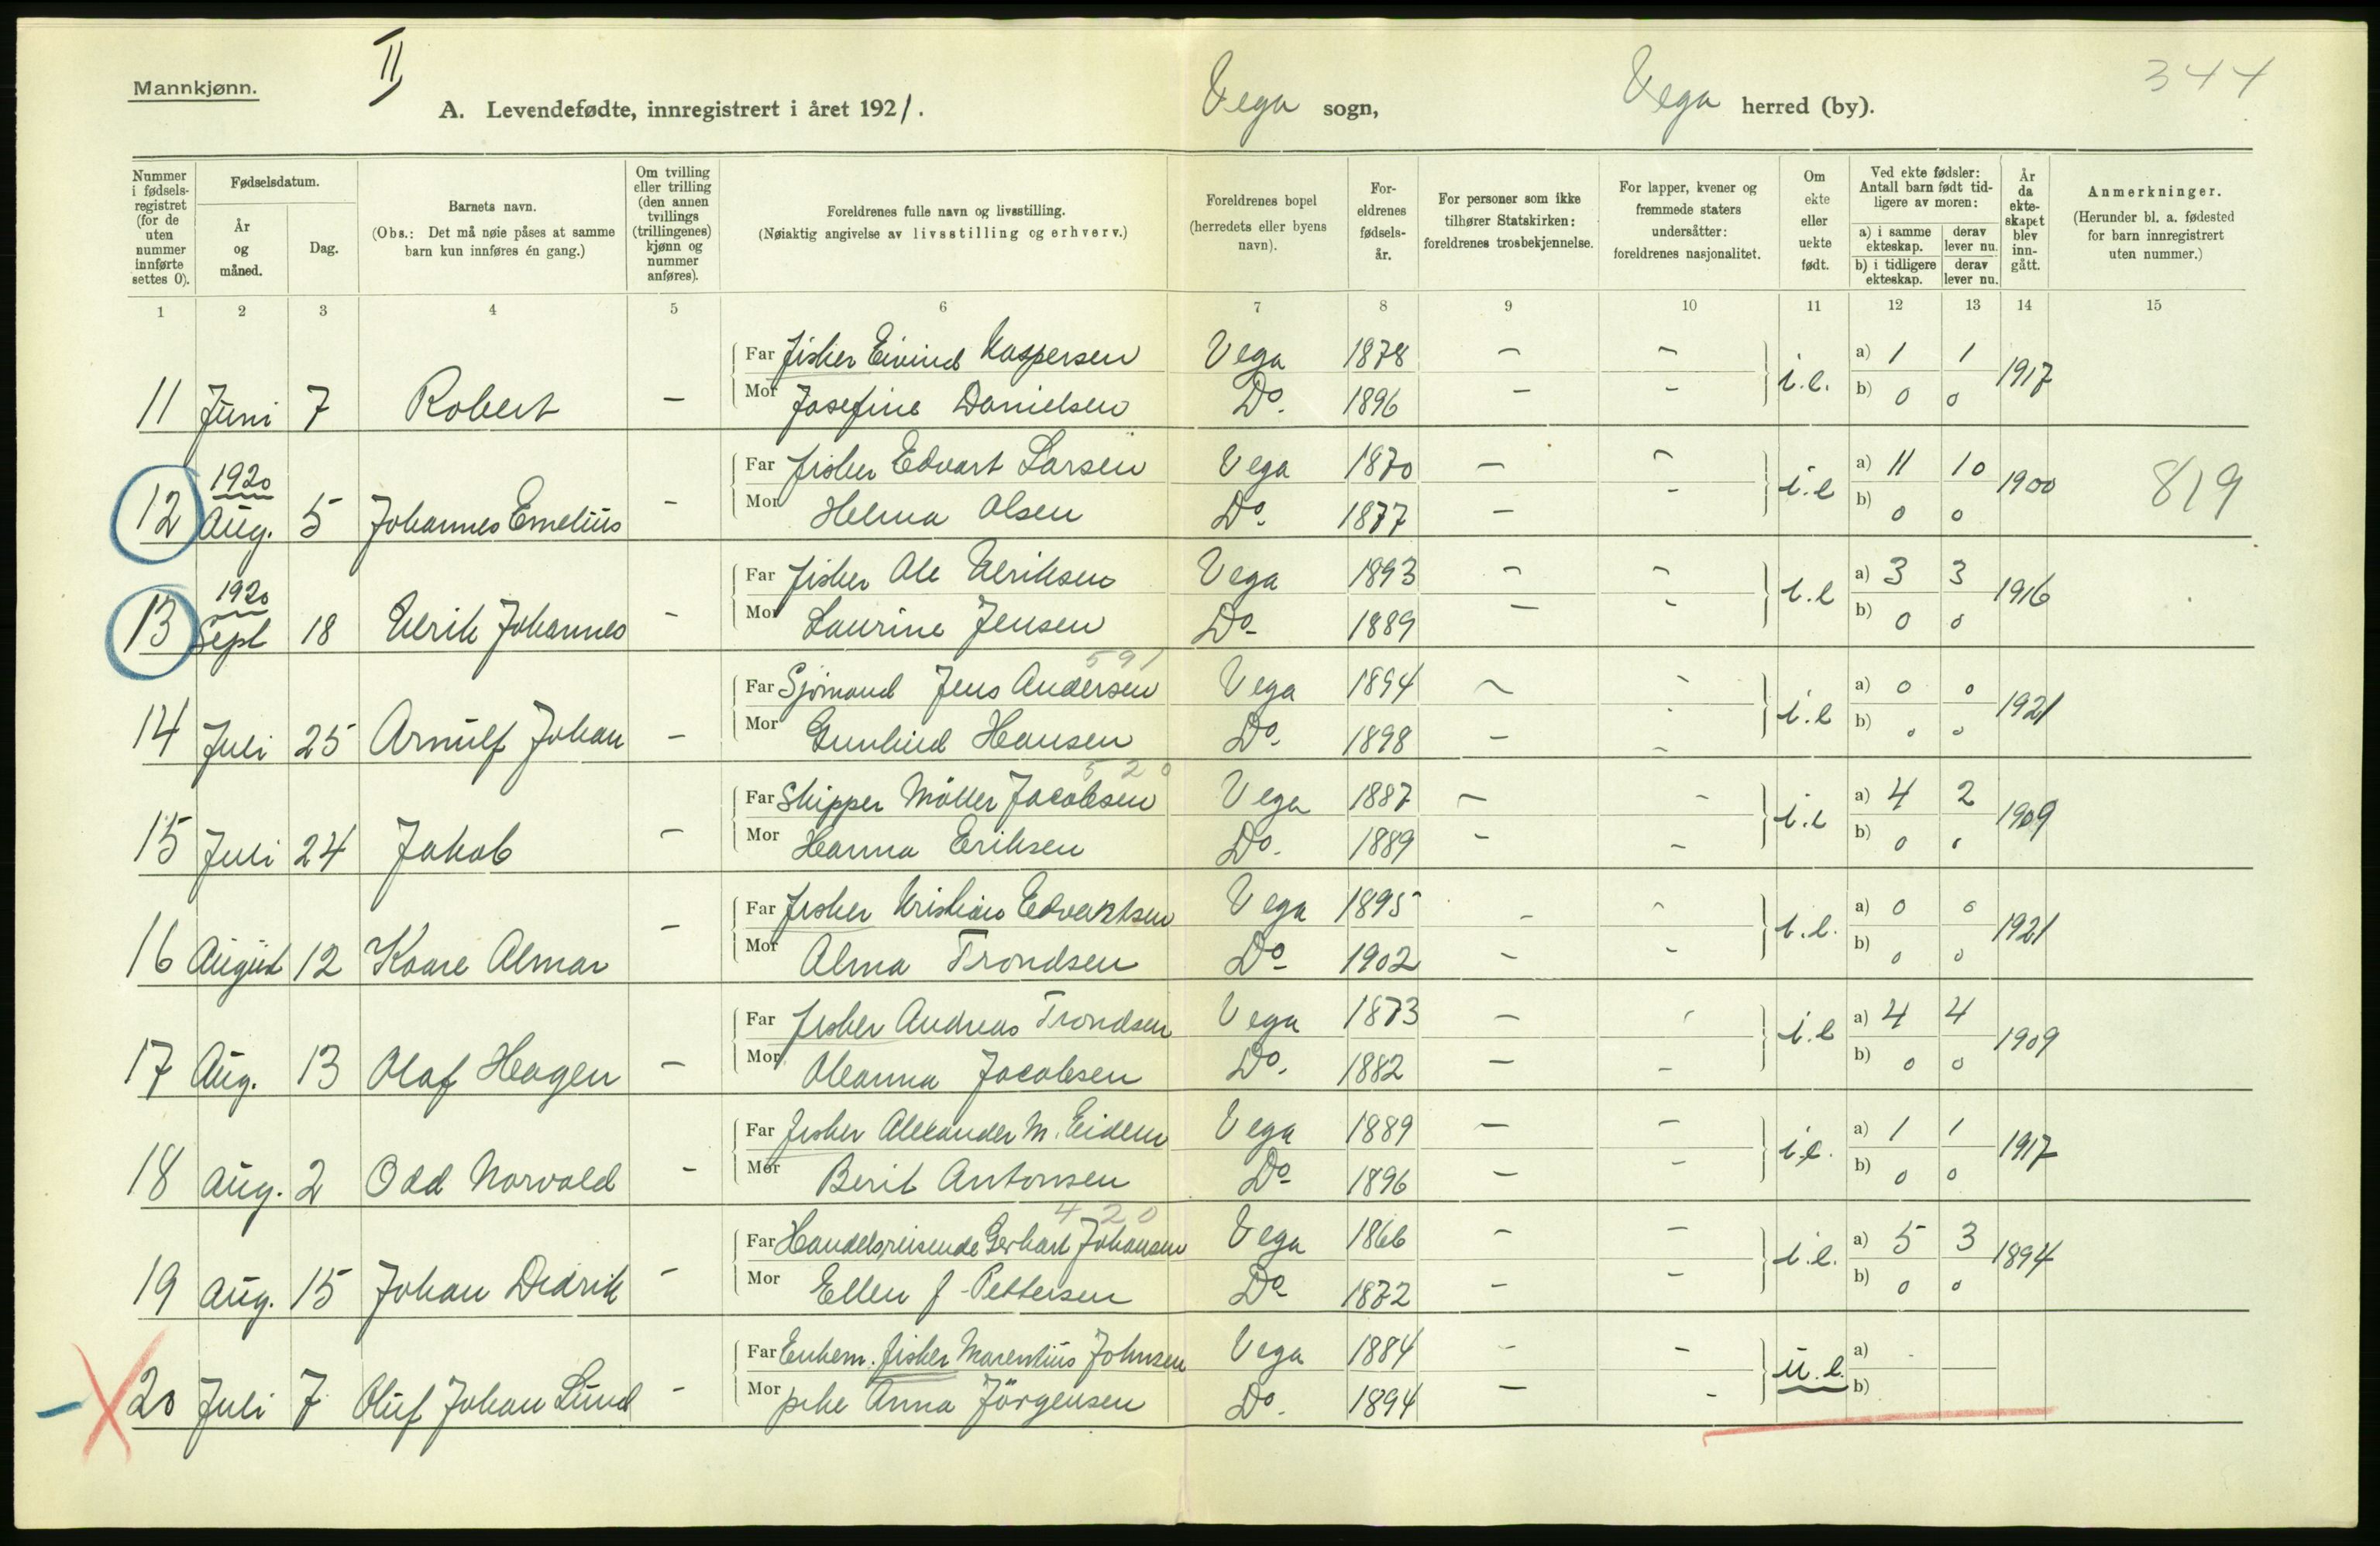 Mannkjønn.
II
344
A. Levendefødte, innregistrert i året 1921.
Vega sogn,
Vega herred (by).
Nummer i fødsels-registret (for de uten nummer innførte settes 0).
Fødselsdatum.
År og måned.
Dag.
Barnets navn.
(Obs.: Det må nøie påses at samme barn kun innføres én gang.)
Om tvilling eller trilling (den annen tvillings (trillingenes) kjønn og nummer anføres).
Foreldrenes fulle navn og livsstilling.
(Nøiaktig angivelse av livsstilling og erhverv.)
Foreldrenes bopel (herredets eller byens navn).
For-eldrenes fødsels-år.
For personer som ikke tilhører Statskirken: foreldrenes trosbekjennelse.
For lapper, kvener og fremmede staters undersåtter: foreldrenes nasjonalitet.
Om ekte eller uekte født.
Ved ekte fødsler: Antall barn født tid-ligere av moren:
a) i samme ekteskap.
derav lever nu.
b) i tidligere ekteskap.
derav lever nu.
År da ekte-skapet blev inn-gått.
Anmerkninger.
(Herunder bl. a. fødested for barn innregistrert uten nummer.)
1 2 3 4 5 6 7 8 9 10 11 12 13 14 15
Far Fisker Eivind Kaspersen Vega 1878 – – a) 1 1
11 Juni 7 Robert – i.e. 1917
Mor Josefine Danielsen Do. 1896 – – b) 0 0
Far Fisker Edvart Larsen Vega 1870 – – a) 11 10
12 1920 Aug. 5 Johannes Emelius – i.e 1900 819
Mor Helma Olsen Do. 1877 – – b) 0 0
Far Fisker Ole Ulriksen Vega 1893 – – a) 3 3
13 1920 Sept 18 Ulrik Johannes – i.e 1916
Mor Laurine Jensen Do. 1889 – – b) 0 0
591
Far Sjömand Jens Andersen Vega 1894 – – a) 0 0
14 Juli 25 Arnulf Johan – i.e 1921
Mor Gunhild Hansen Do. 1898 – – b) 0 0
520
Far Skipper Möller Jacobsen Vega 1887 – – a) 4 2
15 Juli 24 Jakob – i.e 1909
Mor Hanna Eriksen Do. 1889 – – b) 0 0
Far Fisker Kristian Edvartsen Vega 1895 – – a) 0 0
16 August 12 Kaare Almar – i.e. 1921
Mor Alma Trondsen Do. 1902 – – b) 0 0
Far Fisker Andreas Trondsen Vega 1873 – – a) 4 4
17 Aug. 13 Olaf Hagen – i.e 1909
Mor Oleanna Jacobsen Do. 1882 – – b) 0 0
Far Fisker Alexander M. Eidem Vega 1889 – – a) 1 1
18 Aug. 2 Odd Norvald – i.e. 1917
Mor Berit Antonsen Do. 1896 – – b) 0 0
420
Far Handelsreisende Gerhart Johansen Vega 1866 – – a) 5 3
19 Aug. 15 Johan Didrik – i.e. 1894
Mor Ellen J. Pettersen Do. 1872 – – b) 0 0
Far Enkem. fisker Marentius Johnsen Vega 1884 – – a)
20 Juli 7 Oluf Johan Lund – u.e.
Mor pike Anna Jörgensen Do. 1894 – – b)